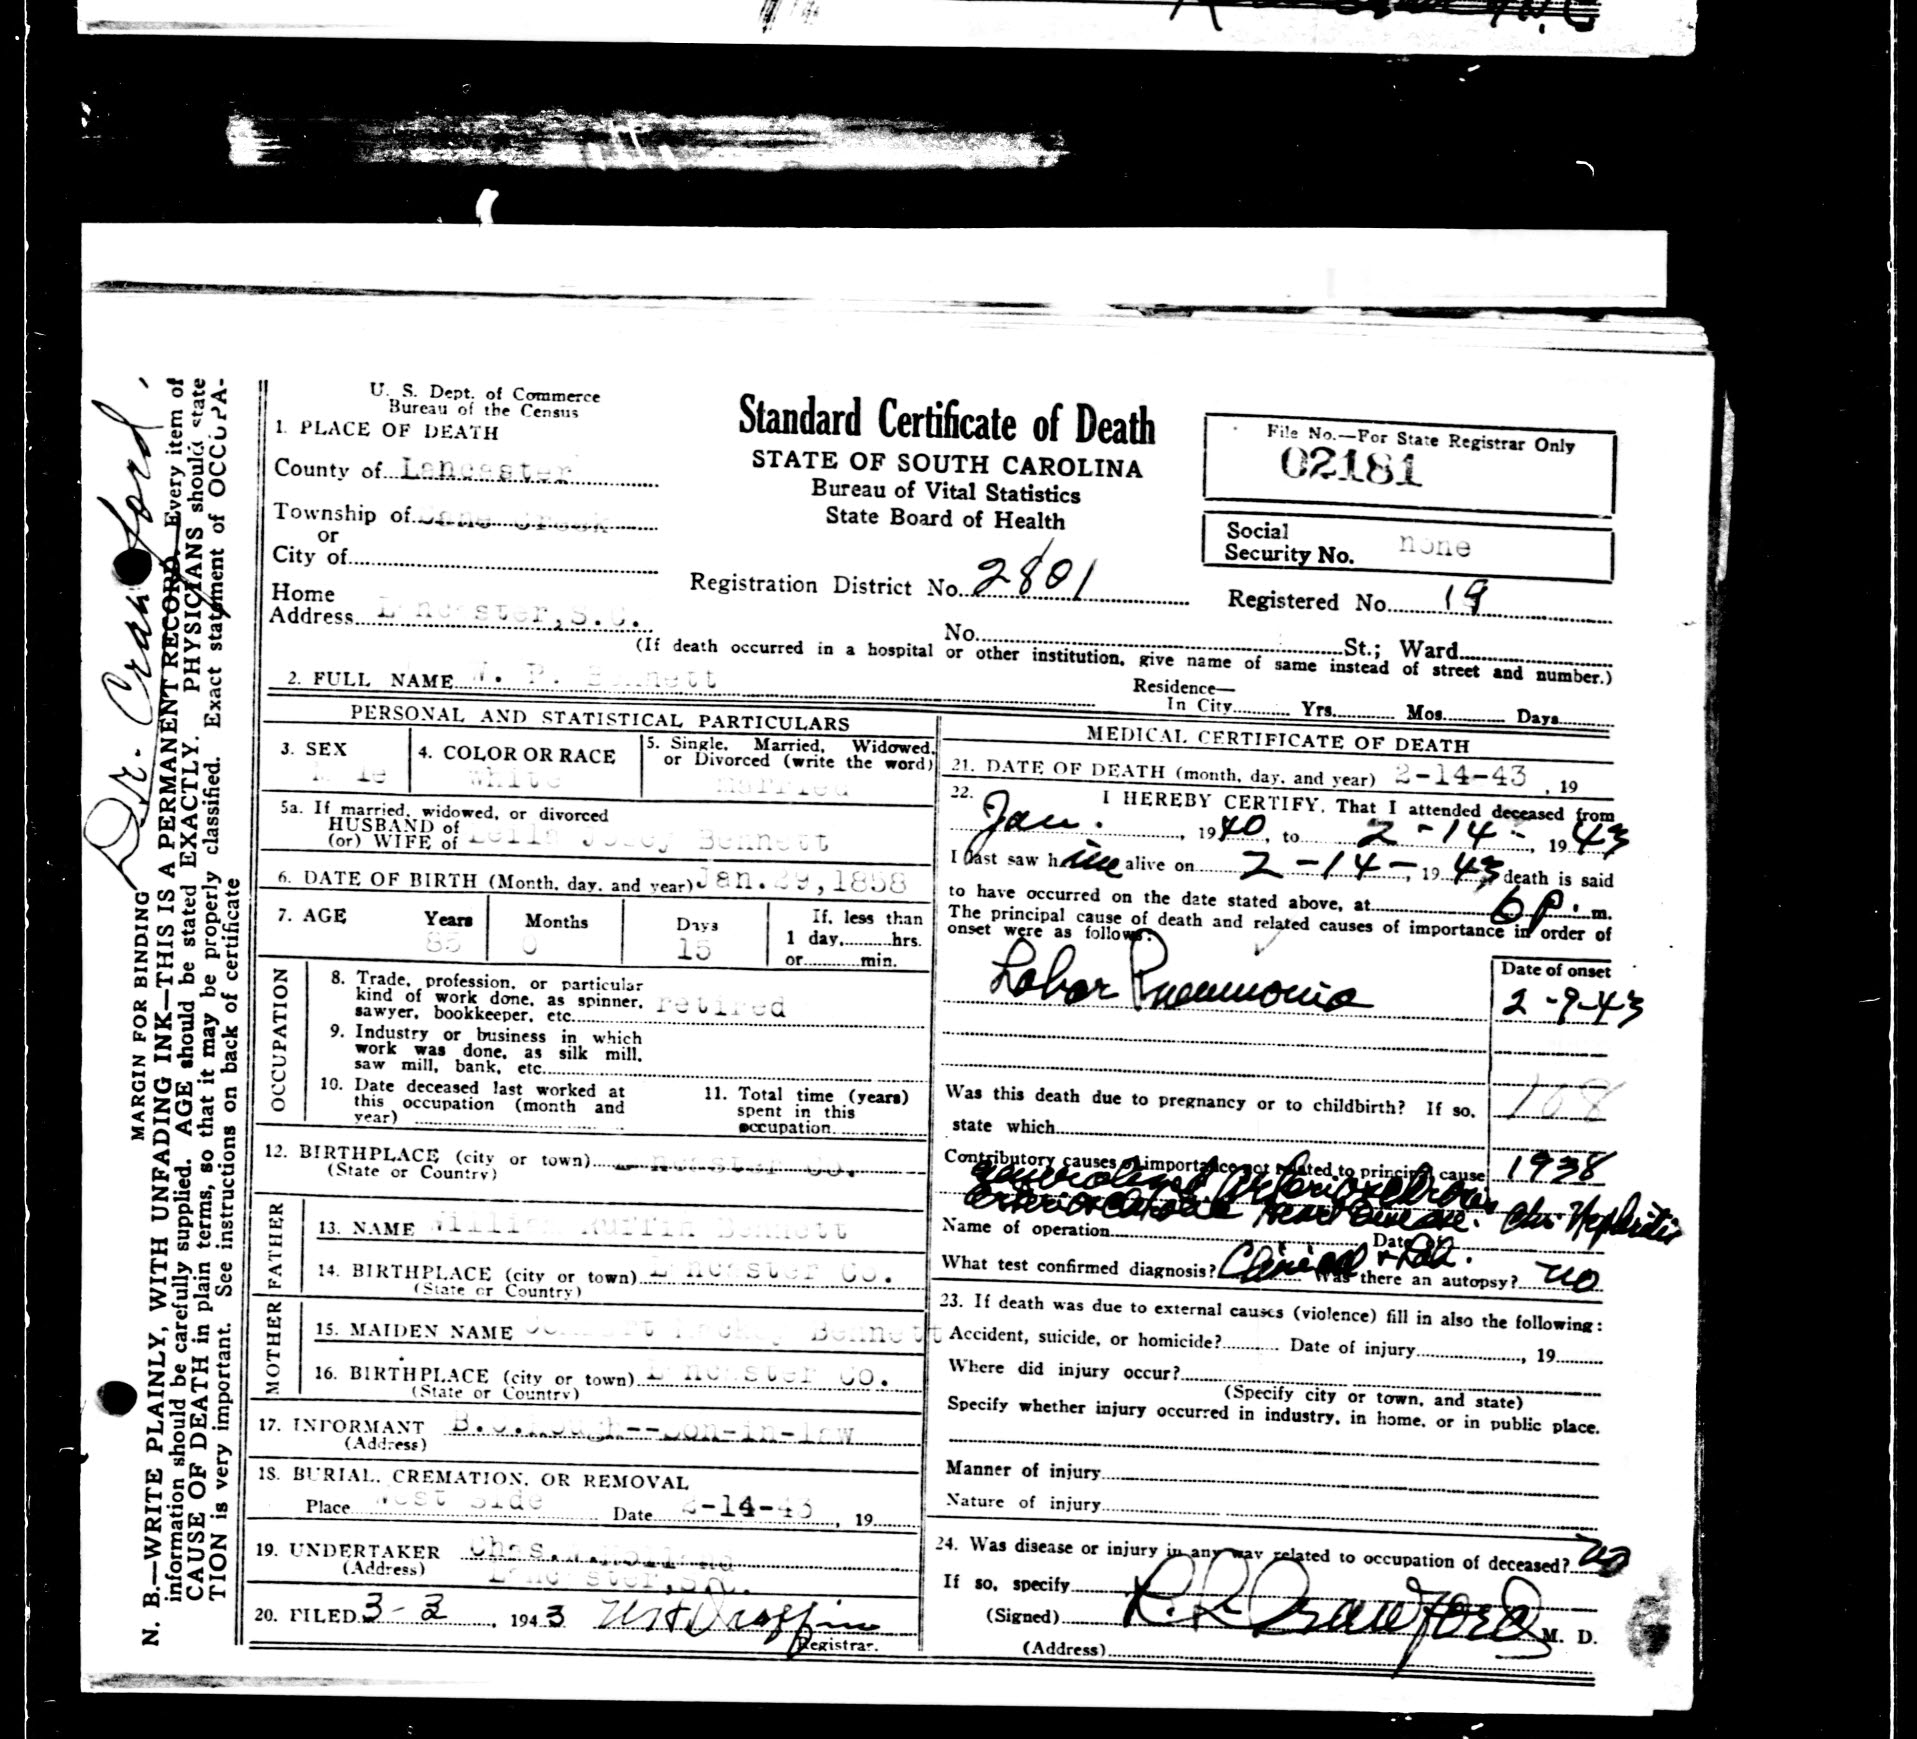 Dr. Crawford
MARGIN FOR BINDING
N. B.—WRITE PLAINLY, WITH UNFADING INK—THIS IS A PERMANENT RECORD. Every item of
information should be carefully supplied. AGE should be stated EXACTLY. PHYSICIANS should state
CAUSE OF DEATH in plain terms, so that it may be properly classified. Exact statement of OCCUPA-
TION is very important. See instructions on back of certificate
U. S. Dept. of Commerce
Bureau of the Census
Standard Certificate of Death
STATE OF SOUTH CAROLINA
Bureau of Vital Statistics
State Board of Health
File No.—For State Registrar Only
02181
Social
Security No. none
1. PLACE OF DEATH
County of Lancaster
Township of Cane Creek
or
City of
Home
Address Lancaster, S.C.
Registration District No. 2801
Registered No. 19
No. St.; Ward
(If death occurred in a hospital or other institution, give name of same instead of street and number.)
2. FULL NAME W. P. Bennett
Residence—
In City Yrs. Mos. Days
PERSONAL AND STATISTICAL PARTICULARS
3. SEX
Male
4. COLOR OR RACE
white
5. Single, Married, Widowed,
or Divorced (write the word)
married
5a. If married, widowed, or divorced
HUSBAND of
(or) WIFE of Leila Josey Bennett
6. DATE OF BIRTH (Month, day, and year) Jan. 29, 1858
7. AGE Years Months Days If, less than
85 0 15 1 day, hrs.
or min.
OCCUPATION
8. Trade, profession, or particular
kind of work done, as spinner,
sawyer, bookkeeper, etc. retired
9. Industry or business in which
work was done, as silk mill,
saw mill, bank, etc.
10. Date deceased last worked at
this occupation (month and
year)
11. Total time (years)
spent in this
occupation
12. BIRTHPLACE (city or town) Lancaster Co.
(State or Country)
FATHER
13. NAME William Ruffin Bennett
14. BIRTHPLACE (city or town) Lancaster Co.
(State or Country)
MOTHER
15. MAIDEN NAME Mackey Bennett
16. BIRTHPLACE (city or town) Lancaster Co.
(State or Country)
17. INFORMANT B.C. Hough--Son-in-law
(Address)
18. BURIAL, CREMATION, OR REMOVAL
Place West Side Date 2-14-43, 19
19. UNDERTAKER Chas.
(Address) Lancaster, S.C.
20. FILED 3-2, 1943
Registrar.
MEDICAL CERTIFICATE OF DEATH
21. DATE OF DEATH (month, day, and year) 2-14-43, 19
22. I HEREBY CERTIFY, That I attended deceased from
Jan., 1940, to 2-14-, 1943
I last saw him alive on 2-14-, 1943, death is said
to have occurred on the date stated above, at 6 p. m.
The principal cause of death and related causes of importance in order of
onset were as follows:
Date of onset
Lobar Pneumonia 2-9-43
108
Was this death due to pregnancy or to childbirth? If so,
state which
Contributory causes of importance not related to principal cause 1938
generalized Arteriosclerosis
Arteriosclerotic Heart Disease. Chr. Nephritis
Name of operation Date of
What test confirmed diagnosis? Clinical + Lab. Was there an autopsy? no
23. If death was due to external causes (violence) fill in also the following:
Accident, suicide, or homicide? Date of injury, 19
Where did injury occur?
(Specify city or town, and state)
Specify whether injury occurred in industry, in home, or in public place.
Manner of injury
Nature of injury
24. Was disease or injury in any way related to occupation of deceased? no
If so, specify
(Signed) R. L. Crawford M. D.
(Address)